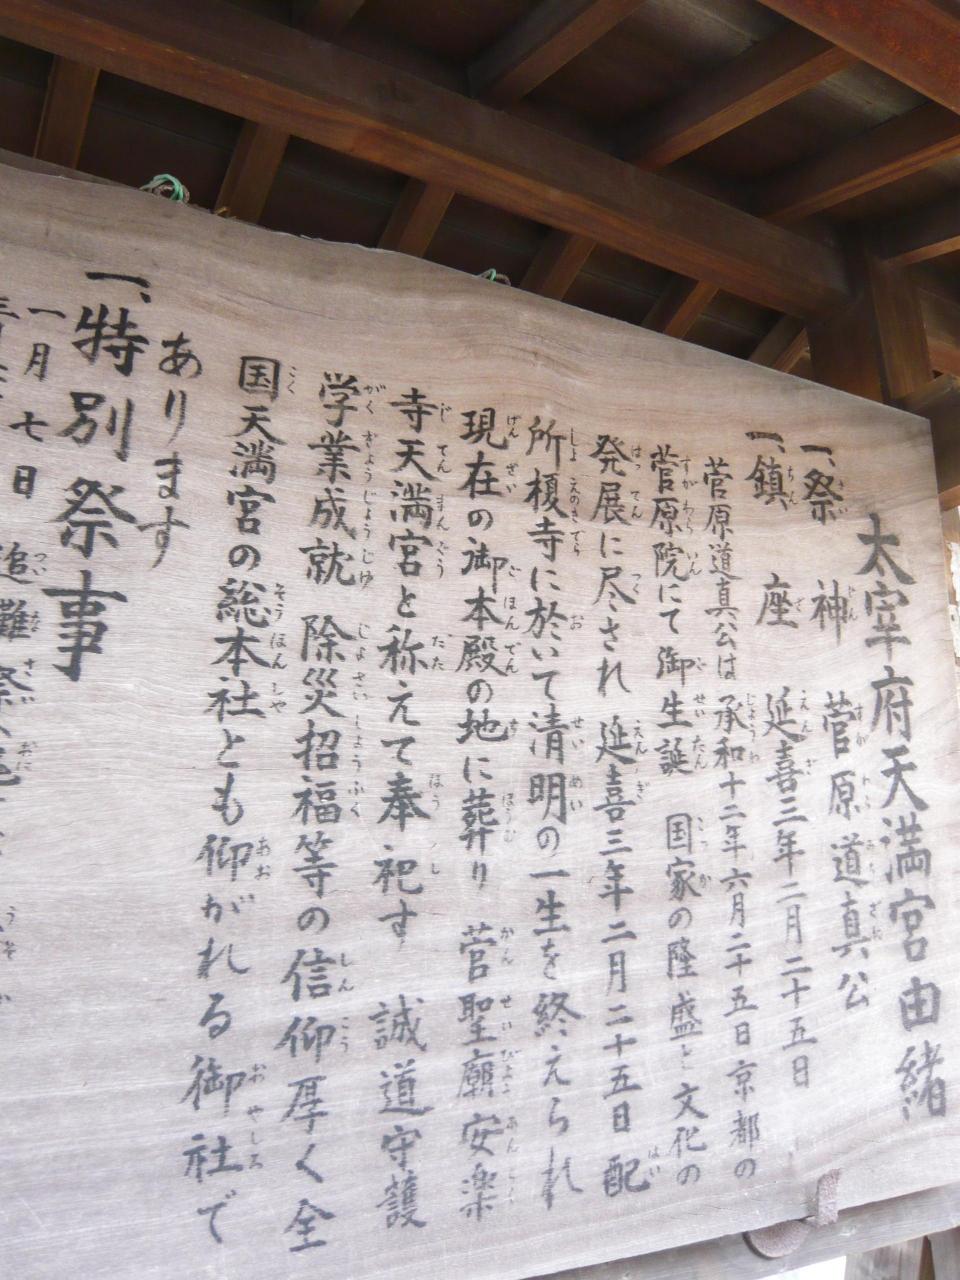 太宰府天満宮由緒
一、祭神 菅原道真公
一、鎮座 延喜三年二月二十五日
菅原道真公は承和十二年六月二十五日京都の
菅原院にて御生誕 国家の隆盛と文化の
発展に尽され 延喜三年二月二十五日 配
所榎寺に於いて清明の一生を終えられ
現在の御本殿の地に葬り 菅聖廟安楽
寺天満宮と称えて奉祀す 誠道守護
学業成就 除災招福等の信仰厚く全
国天満宮の総本社とも仰がれる御社で
あります
一、特別祭事
一月七日